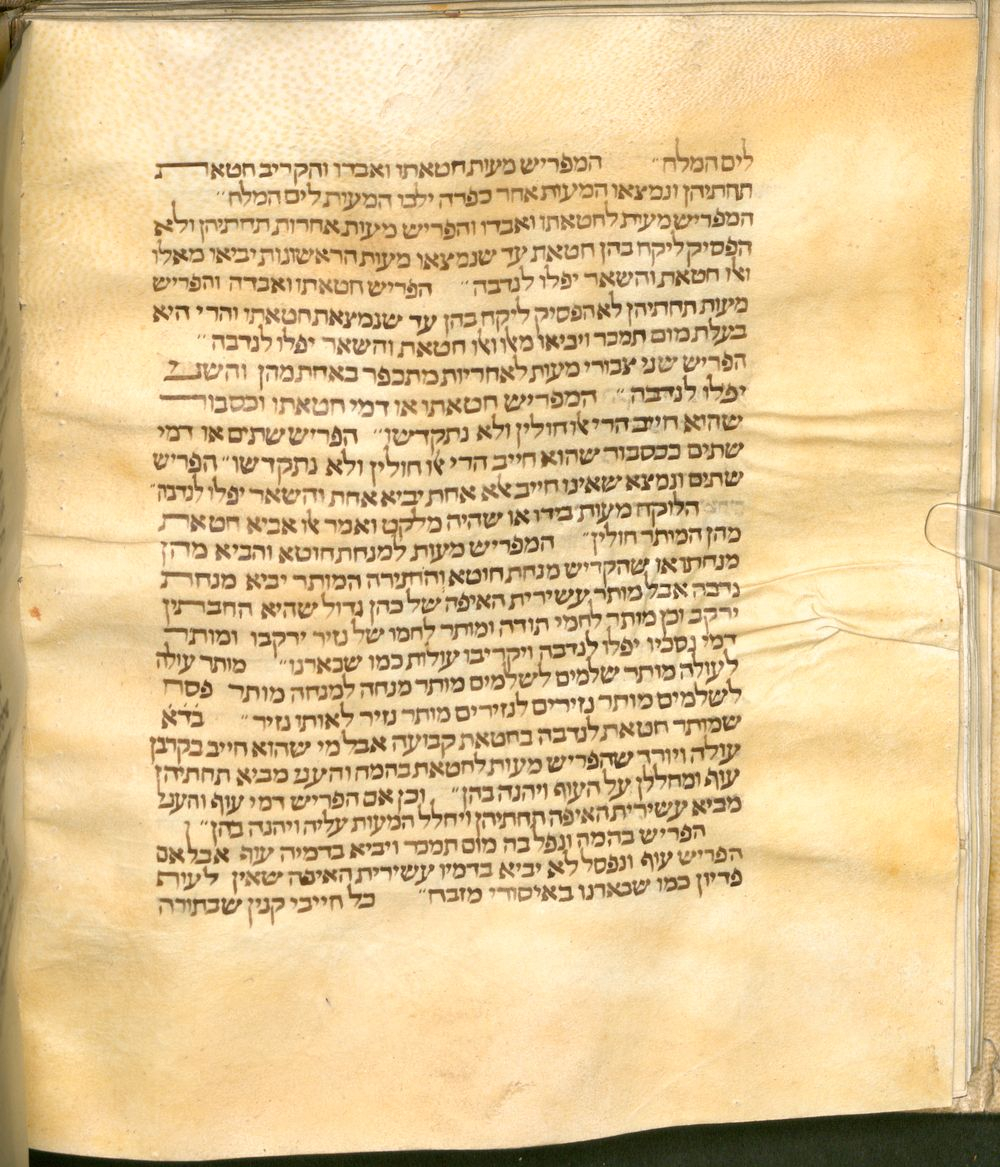 לים המלח״ המפריש מעות חטאתו ואבדו והקריב חטאת
תחתיהן ונמצאו המעות אחר כפרה ילכו המעות לים המלח״
המפריש מעות לחטאתו ואבדו והפריש מעות אחרות תחתיהן ולא
הפסיק ליקח בהן חטאת עד שנמצאו מעות הראשונות יביאו מאלו
ואלו חטאת והשאר יפלו לנדבה״ הפריש חטאתו ואבדה והפריש
מעות תחתיהן לא הפסיק ליקח בהן עד שנמצאת חטאתו והרי היא
בעלת מום תמכר ויביאו מאלו ואלו חטאת והשאר יפלו לנדבה״
הפריש שני צבורי מעות לאחריות מתכפר באחת מהן והשני
יפלו לנדבה״ המפריש חטאתו או דמי חטאתו וכסבור
שהוא חייב הרי אלו חולין ולא נתקדשו״ הפריש שתים או דמי
שתים ככסבור שהוא חייב הרי אלו חולין ולא נתקדשו״ הפריש
שתים ונמצא שאינו חייב אלא אחת יביא אחת והשאר יפלו לנדבה״
הלוקח מעות בידו או שהיה מלקט ואמר אלו אביא חטאת
מהן המותר חולין״ המפריש מעות למנחת חוטא והביא מהן
מנחתו או שהקדיש מנחת חוטא והתירה המותר יביא מנחת
נדבה אבל מותר עשירית האיפה של כהן גדול שהיא החבתין
ירקב וכן מותר לחמי תודה ומותר לחמו של נזיר ירקבו ומותר
דמי נסכיו יפלו לנדבה ויקריבו עולות כמו שבארנו״ מותר עולה
לעולה מותר שלמים לשלמים מותר מנחה למנחה מותר פסח
לשלמים מותר נזירים לנזירים מותר נזיר לאותו נזיר״ בדא
שמותר חטאת לנדבה בחטאת קבועה אבל מי שהוא חייב בקרבן
עולה ויורד שהפריש מעות לחטאת בהמה והעני מביא תחתיהן
עוף ומחללן על העוף ויהנה בהן״ וכן אם הפריש דמי עוף והעני
מביא עשירית האיפה תחתיהן ויחלל המעות עליה ויהנה בהן״
הפריש בהמה ונפל בה מום תמכר ויביא בדמיה עוף אבל אם
הפריש עוף ונפסל לא יביא בדמיו עשירית האיפה שאין לעוף
פדיון כמו שבארנו באיסורי מזבח״ כל חייבי קנין שבתורה